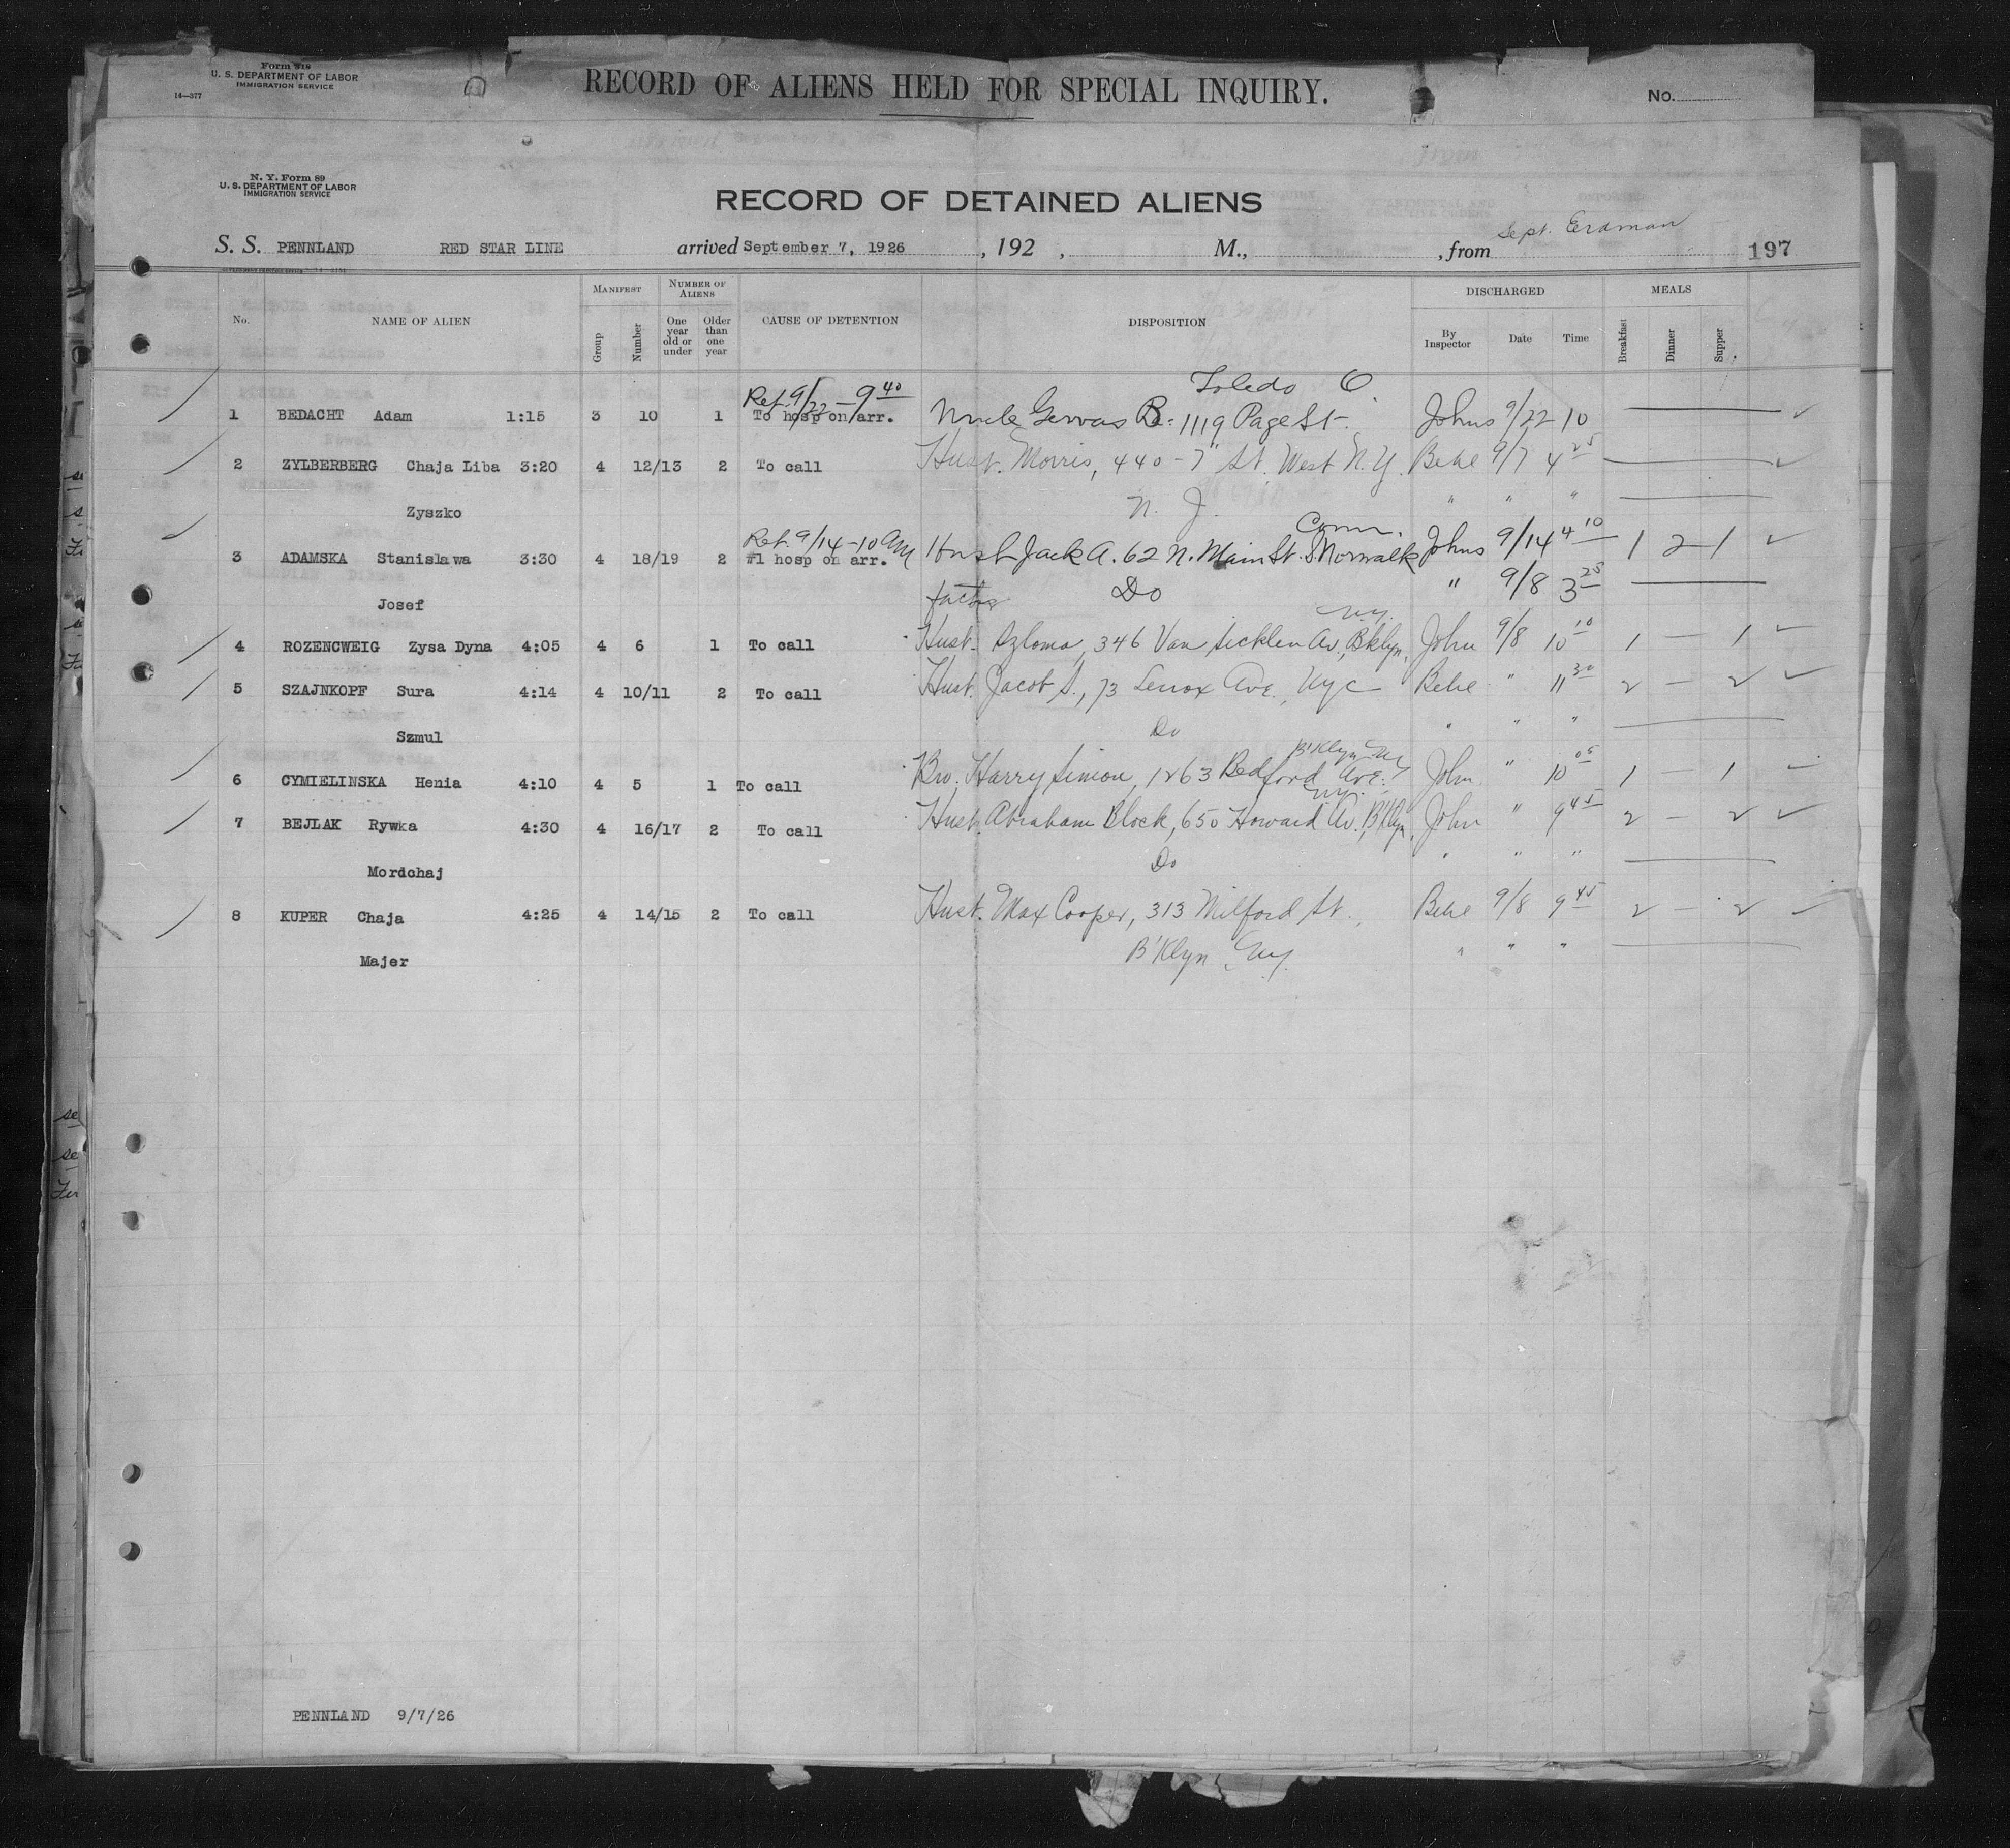 Form 518
U. S. DEPARTMENT OF LABOR
IMMIGRATION SERVICE
14—377
RECORD OF ALIENS HELD FOR SPECIAL INQUIRY.
No.
N. Y. Form 89
U. S. DEPARTMENT OF LABOR
IMMIGRATION SERVICE
RECORD OF DETAINED ALIENS
Sept. Erdman
S. S. PENNLAND RED STAR LINE arrived September 7, 1926 , 192 , M., , from 197
No. NAME OF ALIEN MANIFEST Group Number NUMBER OF ALIENS One year old or under Older than one year CAUSE OF DETENTION DISPOSITION DISCHARGED By Inspector Date Time MEALS Breakfast Dinner Supper
Ret. 9/22 — 9 40 Toledo O.
1 BEDACHT Adam 1:15 3 10 1 To hosp on arr. Uncle Gervas B. 1119 Page St. Johns 9/22 10
2 ZYLBERBERG Chaja Liba 3:20 4 12/13 2 To call Hust. Morris, 440 - 7" St. West N.Y. Behe 9/7 4 25
Zyszko N. J. " " "
Ret. 9/14 - 10 AM Conn.
3 ADAMSKA Stanislawa 3:30 4 18/19 2 #1 hosp on arr. Husb Jack A. 62 N. Main St. S Norwalk Johns 9/14 4 10 1 2 1
Josef father Do " 9/8 3 25
N.Y.
4 ROZENCWEIG Zysa Dyna 4:05 4 6 1 To call Hust. Szloma, 346 Van Sicklen Av., Bklyn, John 9/8 10 10 1 — 1
5 SZAJNKOPF Sura 4:14 4 10/11 2 To call Hust. Jacob S., 73 Lenox Ave., NYC Behe " 11 30 2 — 2
Szmul Do " " "
B'Klyn NY
6 CYMIELINSKA Henia 4:10 4 5 1 To call Bro. Harry Simon, 1263 Bedford Ave. John " 10 05 1 — 1
N.Y.
7 BEJLAK Rywka 4:30 4 16/17 2 To call Hust. Abraham Block, 650 Howard Av., B'Klyn, John " 9 45 2 — 2
Mordchaj Do " " "
8 KUPER Chaja 4:25 4 14/15 2 To call Hust. Max Cooper, 313 Milford St., Behe 9/8 9 45 2 — 2
Majer B'Klyn, NY. " " "
PENNLAND 9/7/26